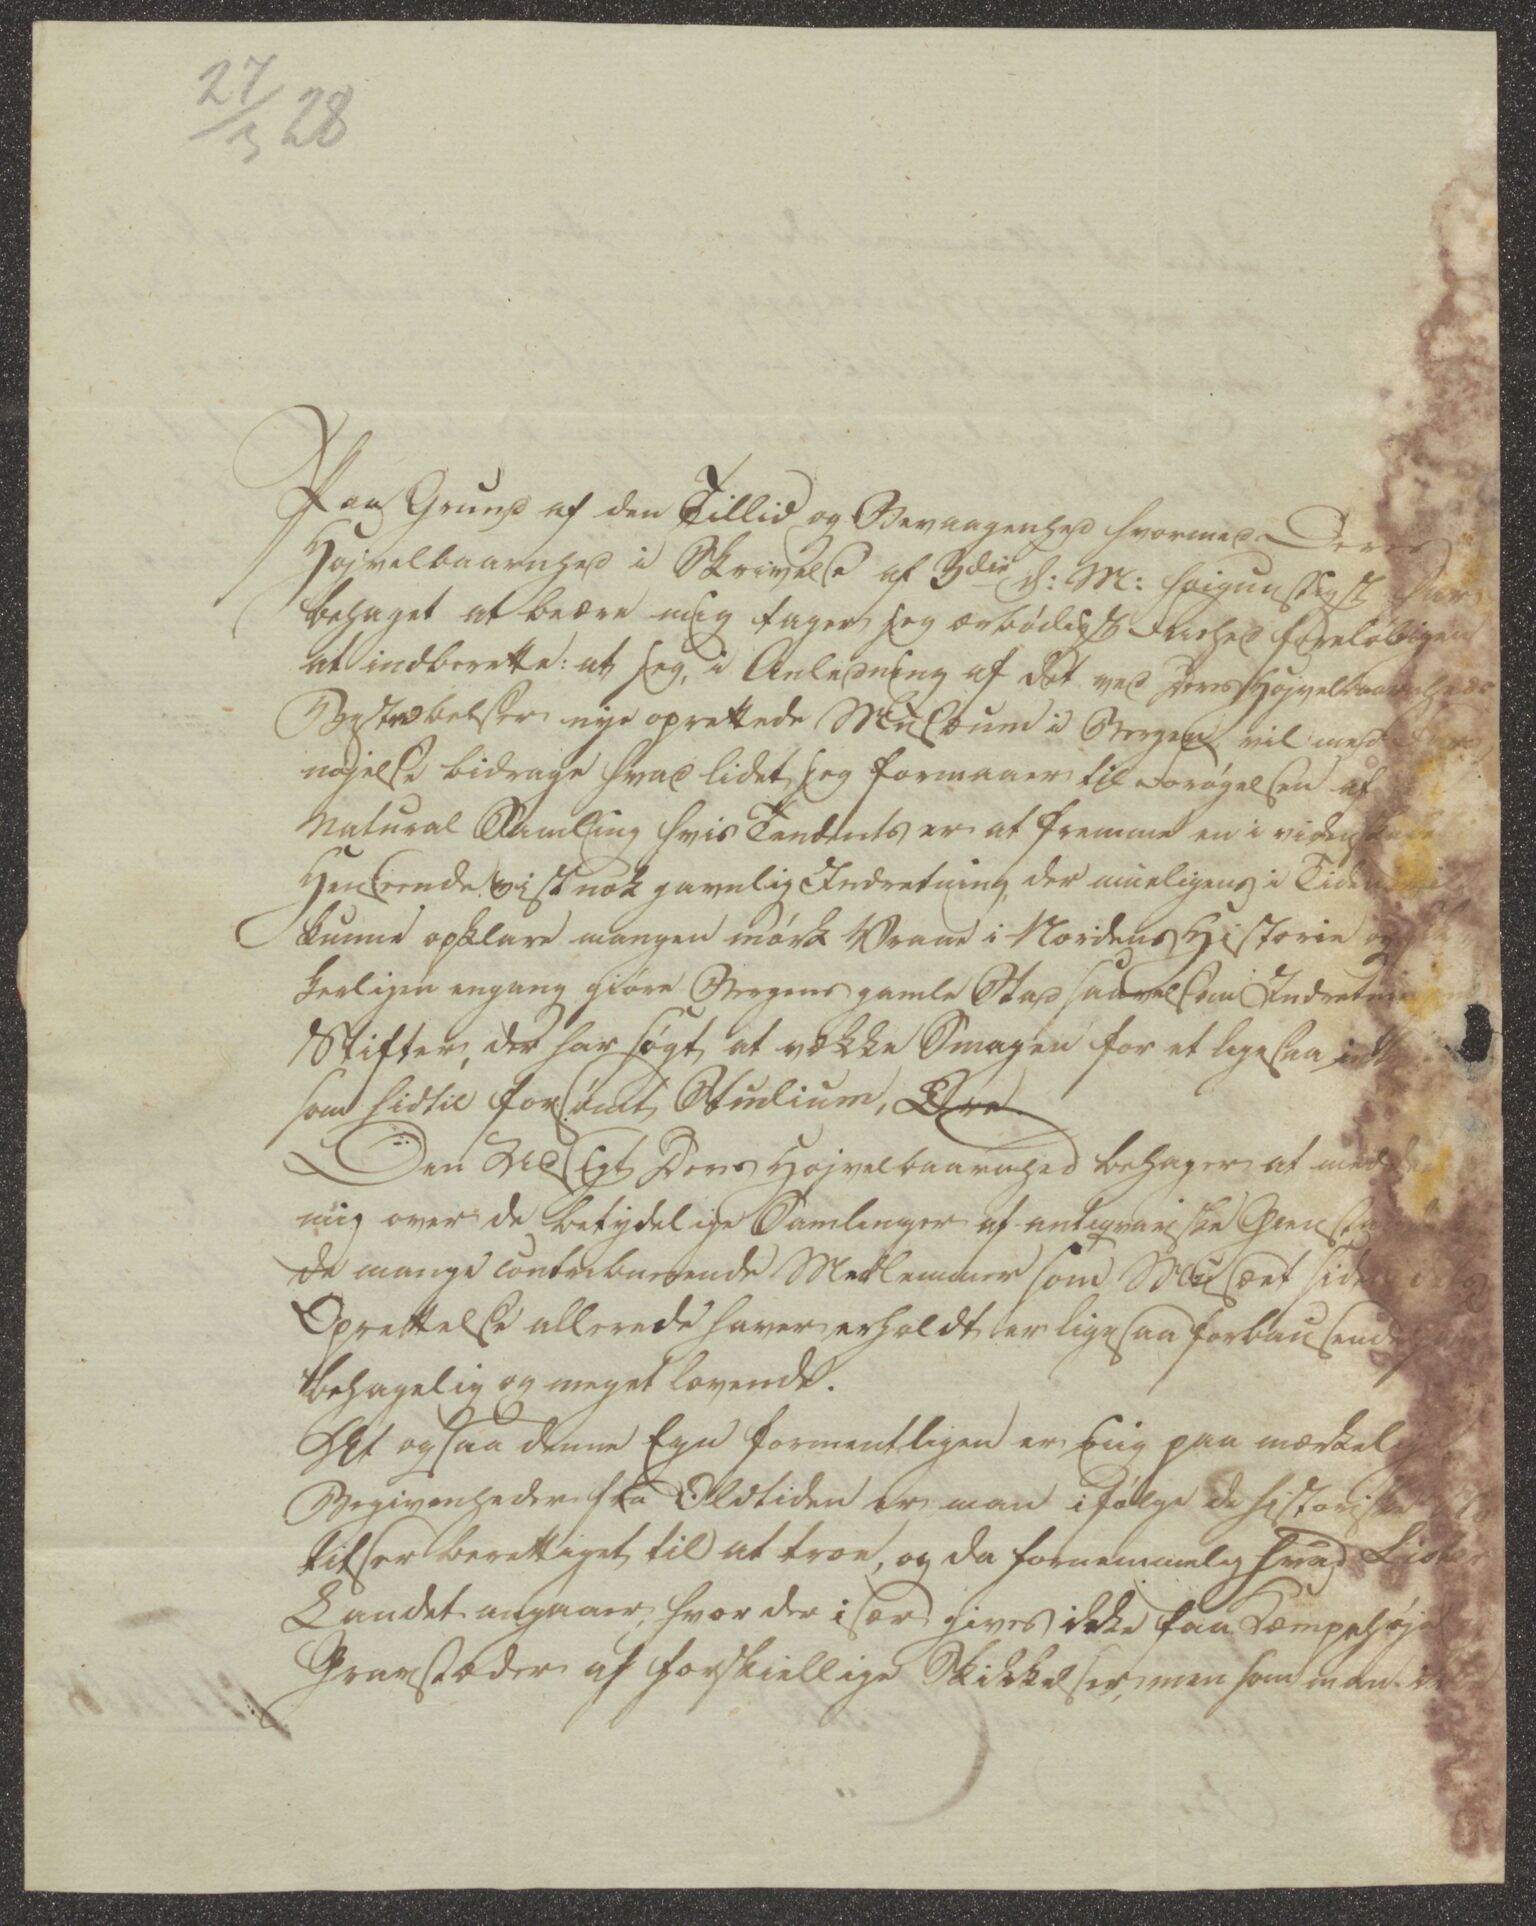 27/3 28
Paa Grund af den Tillid og Bevaagenhed hvormed Deres
Højvelbaarnhed i Skrivelse af 3die d: M: høigunstigst har
behaget at beære mig tager jeg ærbødigst Friehed foreløbigen
at indberette: at jeg, i Anledning af det ved Deres Højvelbaarnheds
Bestræbelser nye oprettede Musæum i Bergen, vil med For
nøjelse bidrage hvad lidet jeg formaaer til Forøgelsen af
Natural Samling hvis Tendents er at fremme en i
Henseende vist nok gavnlig Indretning, der mueligens i Tiden
kunne opklare mangen mørk Vraae i Nordens Historie og
kerligen engang giøre Bergens gamle Stad saavelsom Indretningens
Stifter, der har søgt at vække Smagen for et ligesaa
som hidtil forsømt Studium, Ære.
Den Udsigt Deres Højvelbaarnhed behager at meddele
mig over de betydelige Samlinger af antiqvariske Gienstande
de mange contribuerende Medlemmer som Musæet siden
Oprettelse allerede haver erholdt er ligesaa forbausende
behagelig og meget lovende.
At ogsaa denne Egn formentligen er riig paa mærkelige
Begivenheder fra Oldtiden er man ifølge de historiske No
titser berettiget til at troe, og da fornemmelig hvad Lister
Landet angaaer, hvor der især gives ikke faa Kæmpehøje
Gravstæder af forskiellige Skikkelser, men som man ikke